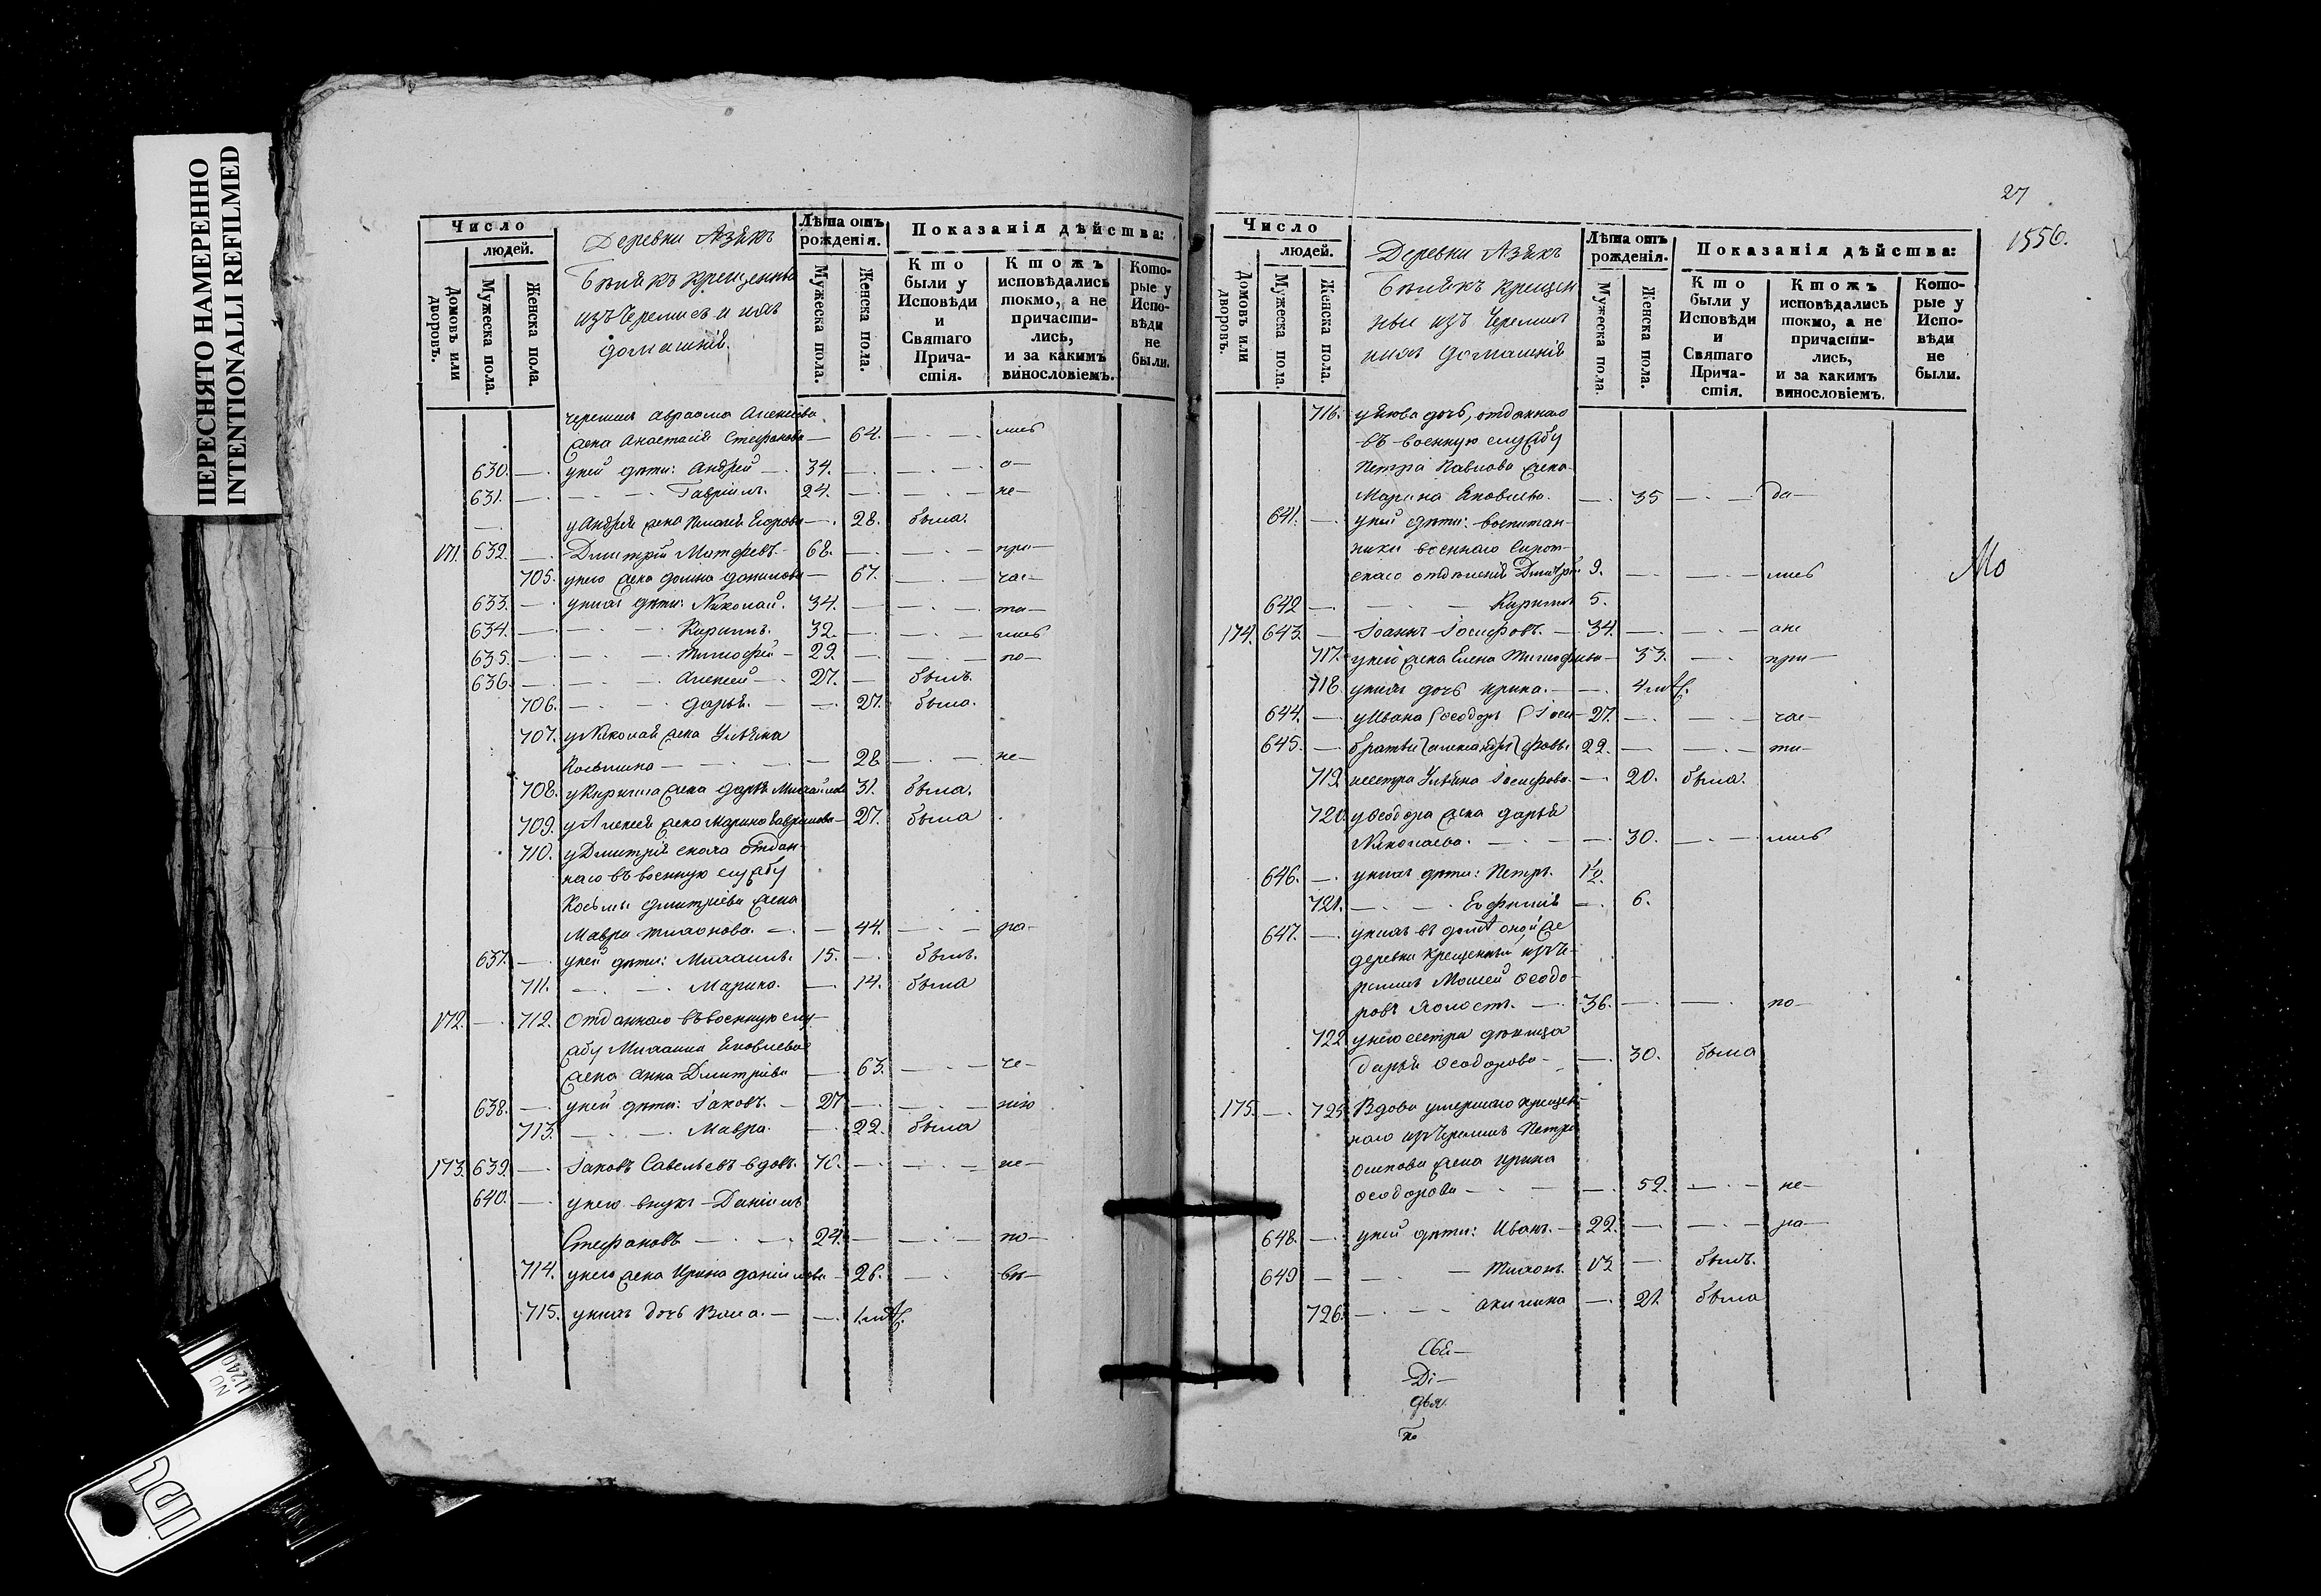 ПЕРЕСНЯТО НАМЕРЕННО
INTENTIONALLI REFILMED
27
1556.
Число
людей.
Домовъ или дворовъ.
Мужеска пола.
Женска пола.
Деревни Азякъ
крещенныя
изъ Черемисъ и ихъ
домашнія.
Лѣта отъ рожденія.
Мужеска пола.
Женска пола.
Показанія дѣйства:
Кто были у Исповѣди и Святаго Причастія.
Ктожъ исповѣдались токмо, а не причастились, и за какимъ винословіемъ.
Которые у Исповѣди не были.
черемис Авраама Алексѣева
жена Анастасія Стефанова — 64. — лись
630. — у ней дѣти: Андрей — 34. — — о—
631. — — Гавріилъ. 24. — — не—
— у Андрея жена Пелагія Егорова — 28. была.
171. 632. — Дмитрій Матфеевъ. — 68. — — при—
705. у него жена Домна Данилова — 67. — час—
633. — у нихъ дѣти: Николай. 34. — — ти—
634. — — Кириллъ. 32. — — лись
635. — — Тимофей — 29. — — по—
636. — — Алексей — 27. — былъ
706. — — Дарья. — 27. была.
707. у Николая жена Ульяна
Козьмина — — 28 — не—
708. у Кирилла жена Дарья Михайлова 31. была.
709. у Алексея жена Марина Гаврилова — 27. была
710. у Дмитрія снохи отдан-
наго въ военную службу
Козьмы Дмитріева жена
Мавра Тихонова. — — 44. — ра—
637. — у ней дѣти: Михаилъ. 15. — былъ.
711. — — Марина. — 14. была
172. — 712. Отданнаго въ военную слу-
жбу Михаила Яковлева
жена Анна Дмитріева — 63. — че—
638. — у ней дѣти: Іаковъ. — 27 — — нію
713. — — Мавра. — 22. была
173. 639. — Іаковъ Савельевъ вдовъ. 70. — — не—
640. — у него внукъ Даніилъ
Стефановъ — — 24. — — по—
714. у него жена Ирина Даніилова — 26. — бы—
715. у нихъ дочь Васа. — — 1. лѣт.
Число
людей.
Домовъ или дворовъ.
Мужеска пола.
Женска пола.
Деревни Азякъ
крещен
ные изъ Черемис
ихъ домашнія
Лѣта отъ рожденія.
Мужеска пола.
Женска пола.
Показанія дѣйства:
Кто были у Исповѣди и Святаго Причастія.
Ктожъ исповѣдались токмо, а не причастились, и за какимъ винословіемъ.
Которые у Исповѣди не были.
716. у Якова дочь, отданнаго
въ военную службу
Петра Павлова жена
Марина Яковлева. — 35 — да—
641. — у ней дѣти: воспитан-
ники военнаго Сирот-
скаго отдѣленія Дмитрій 9. — — лись
Мо
642 — — Кириллъ 5.
174. 643. — Іоаннъ Іосифовъ. — 34. — — ане
717. у него жена Елена Тимофеева — 33. — при—
718. у нихъ дочь Ирина. — — 4 лѣт.
644. — у Ивана Ѳеодоръ Іоси— 27. — — час—
645. — братья Александръ фовы 22. — — ти—
719. и сестра Ульяна Іосифова. — 20. была.
720. у Ѳеодора жена Дарья
Николаева. — — 30. — лись
646. — у нихъ дѣти: Петръ. 1/2.
721. — — Евфимія — 6.
647. — у нихъ въ домѣ оной же
деревни крещенный изъ Че-
ремисъ Моисей Ѳеодо-
ровъ холостъ. — 36. — — по—
722 у него сестра дѣвица
Дарья Ѳеодорова — — 30. была
175. — 725. Вдова умершаго крещен-
наго изъ Черемисъ Петра
Осипова жена Ирина
Ѳеодорова — — 52. — не—
648. — у ней дѣти: Иванъ. — 22. — — ра—
649 — — Тихонъ. 13 — былъ.
726. — — Акилина — 21. была
Свя—
Ді—
дья
По